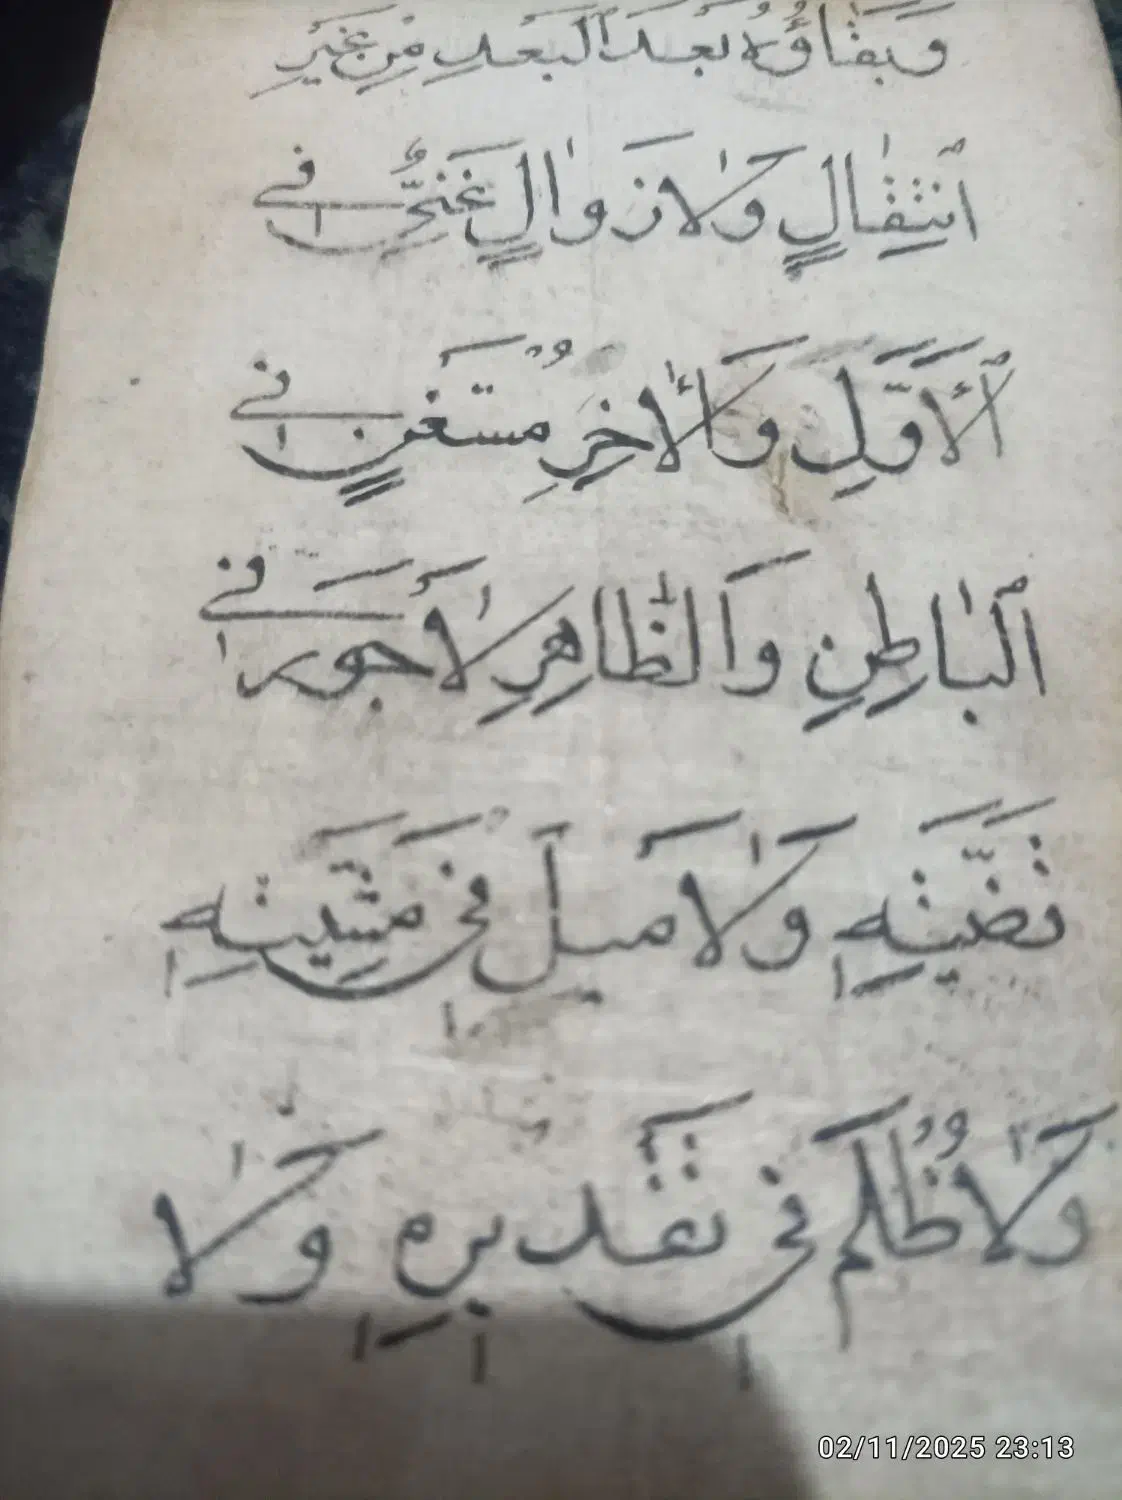 وَبَقَاؤُهُ بَعْدَ الْبَعْدِ مِنْ غَيْرِ
انْتِقَالٍ وَلَا زَوَالٍ غَنِيٌّ فِي
ٱلْأَوَّلِ وَالْأَخِرِ مُسْتَغْنٍ فِي
ٱلْبَاطِنِ وَالظَّاهِرِ لَا جَوْرَ فِي
قَضِيَّتِهِ وَلَا مَيْلَ فِي مَشِيَّتِهِ
وَلَا ظُلْمَ فِي تَقْدِيرِهِ وَلَا
02/11/2025 23:13